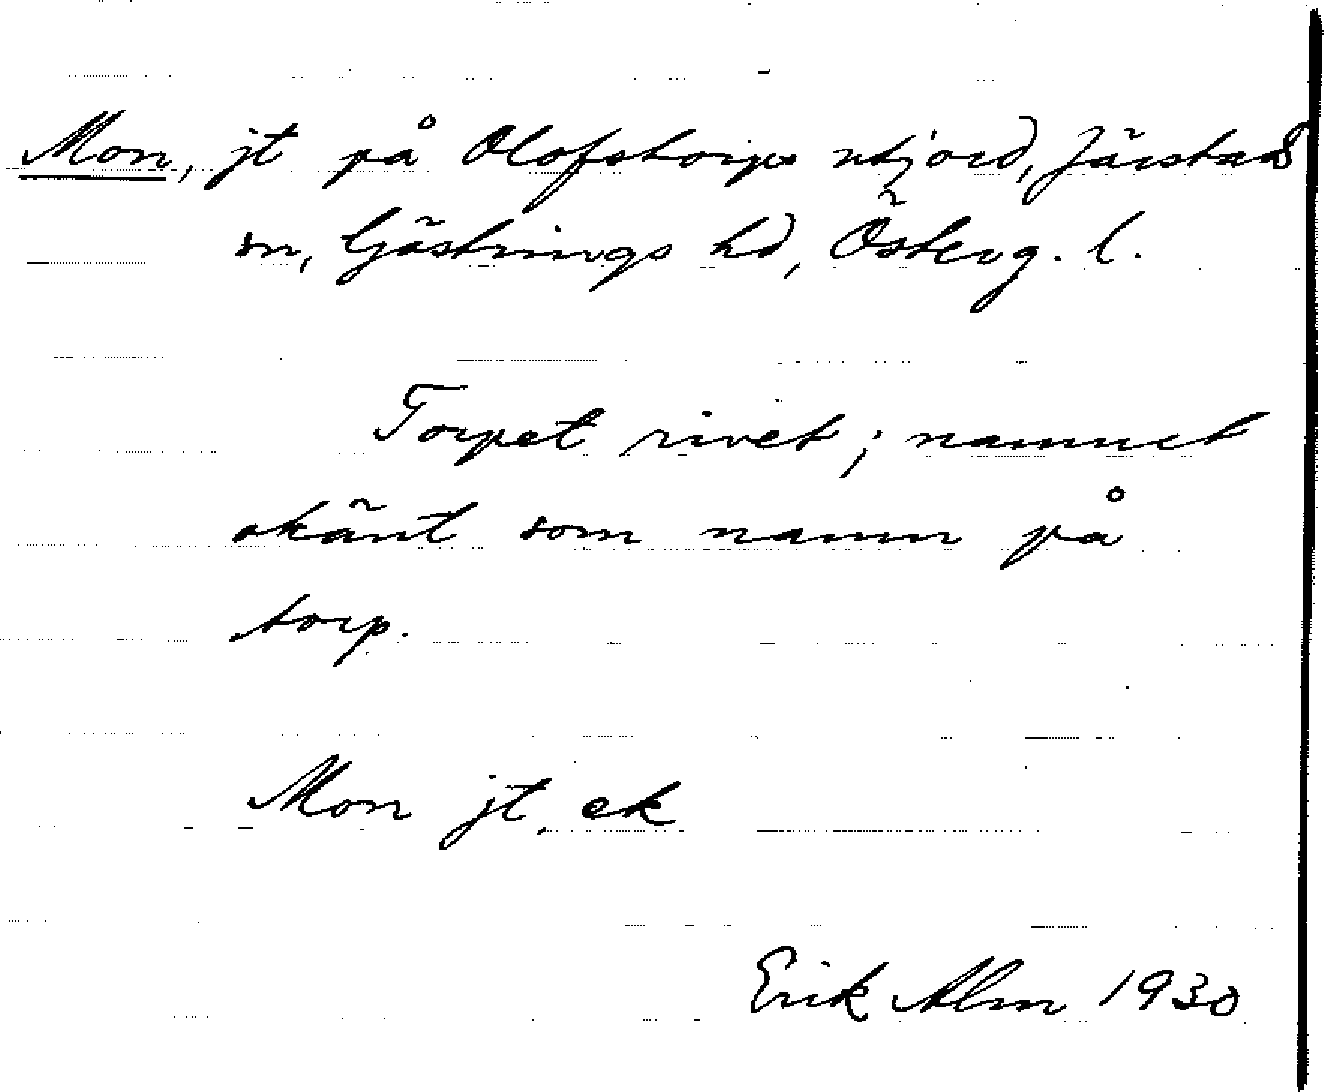 Mon, jt på Olofstorps utjord, Järstad
sn, Gästrings hd, Österg. l.
Torpet rivet; namnet
okänt som namn på
torp.
Mon jt, ek
Erik Alm 1930